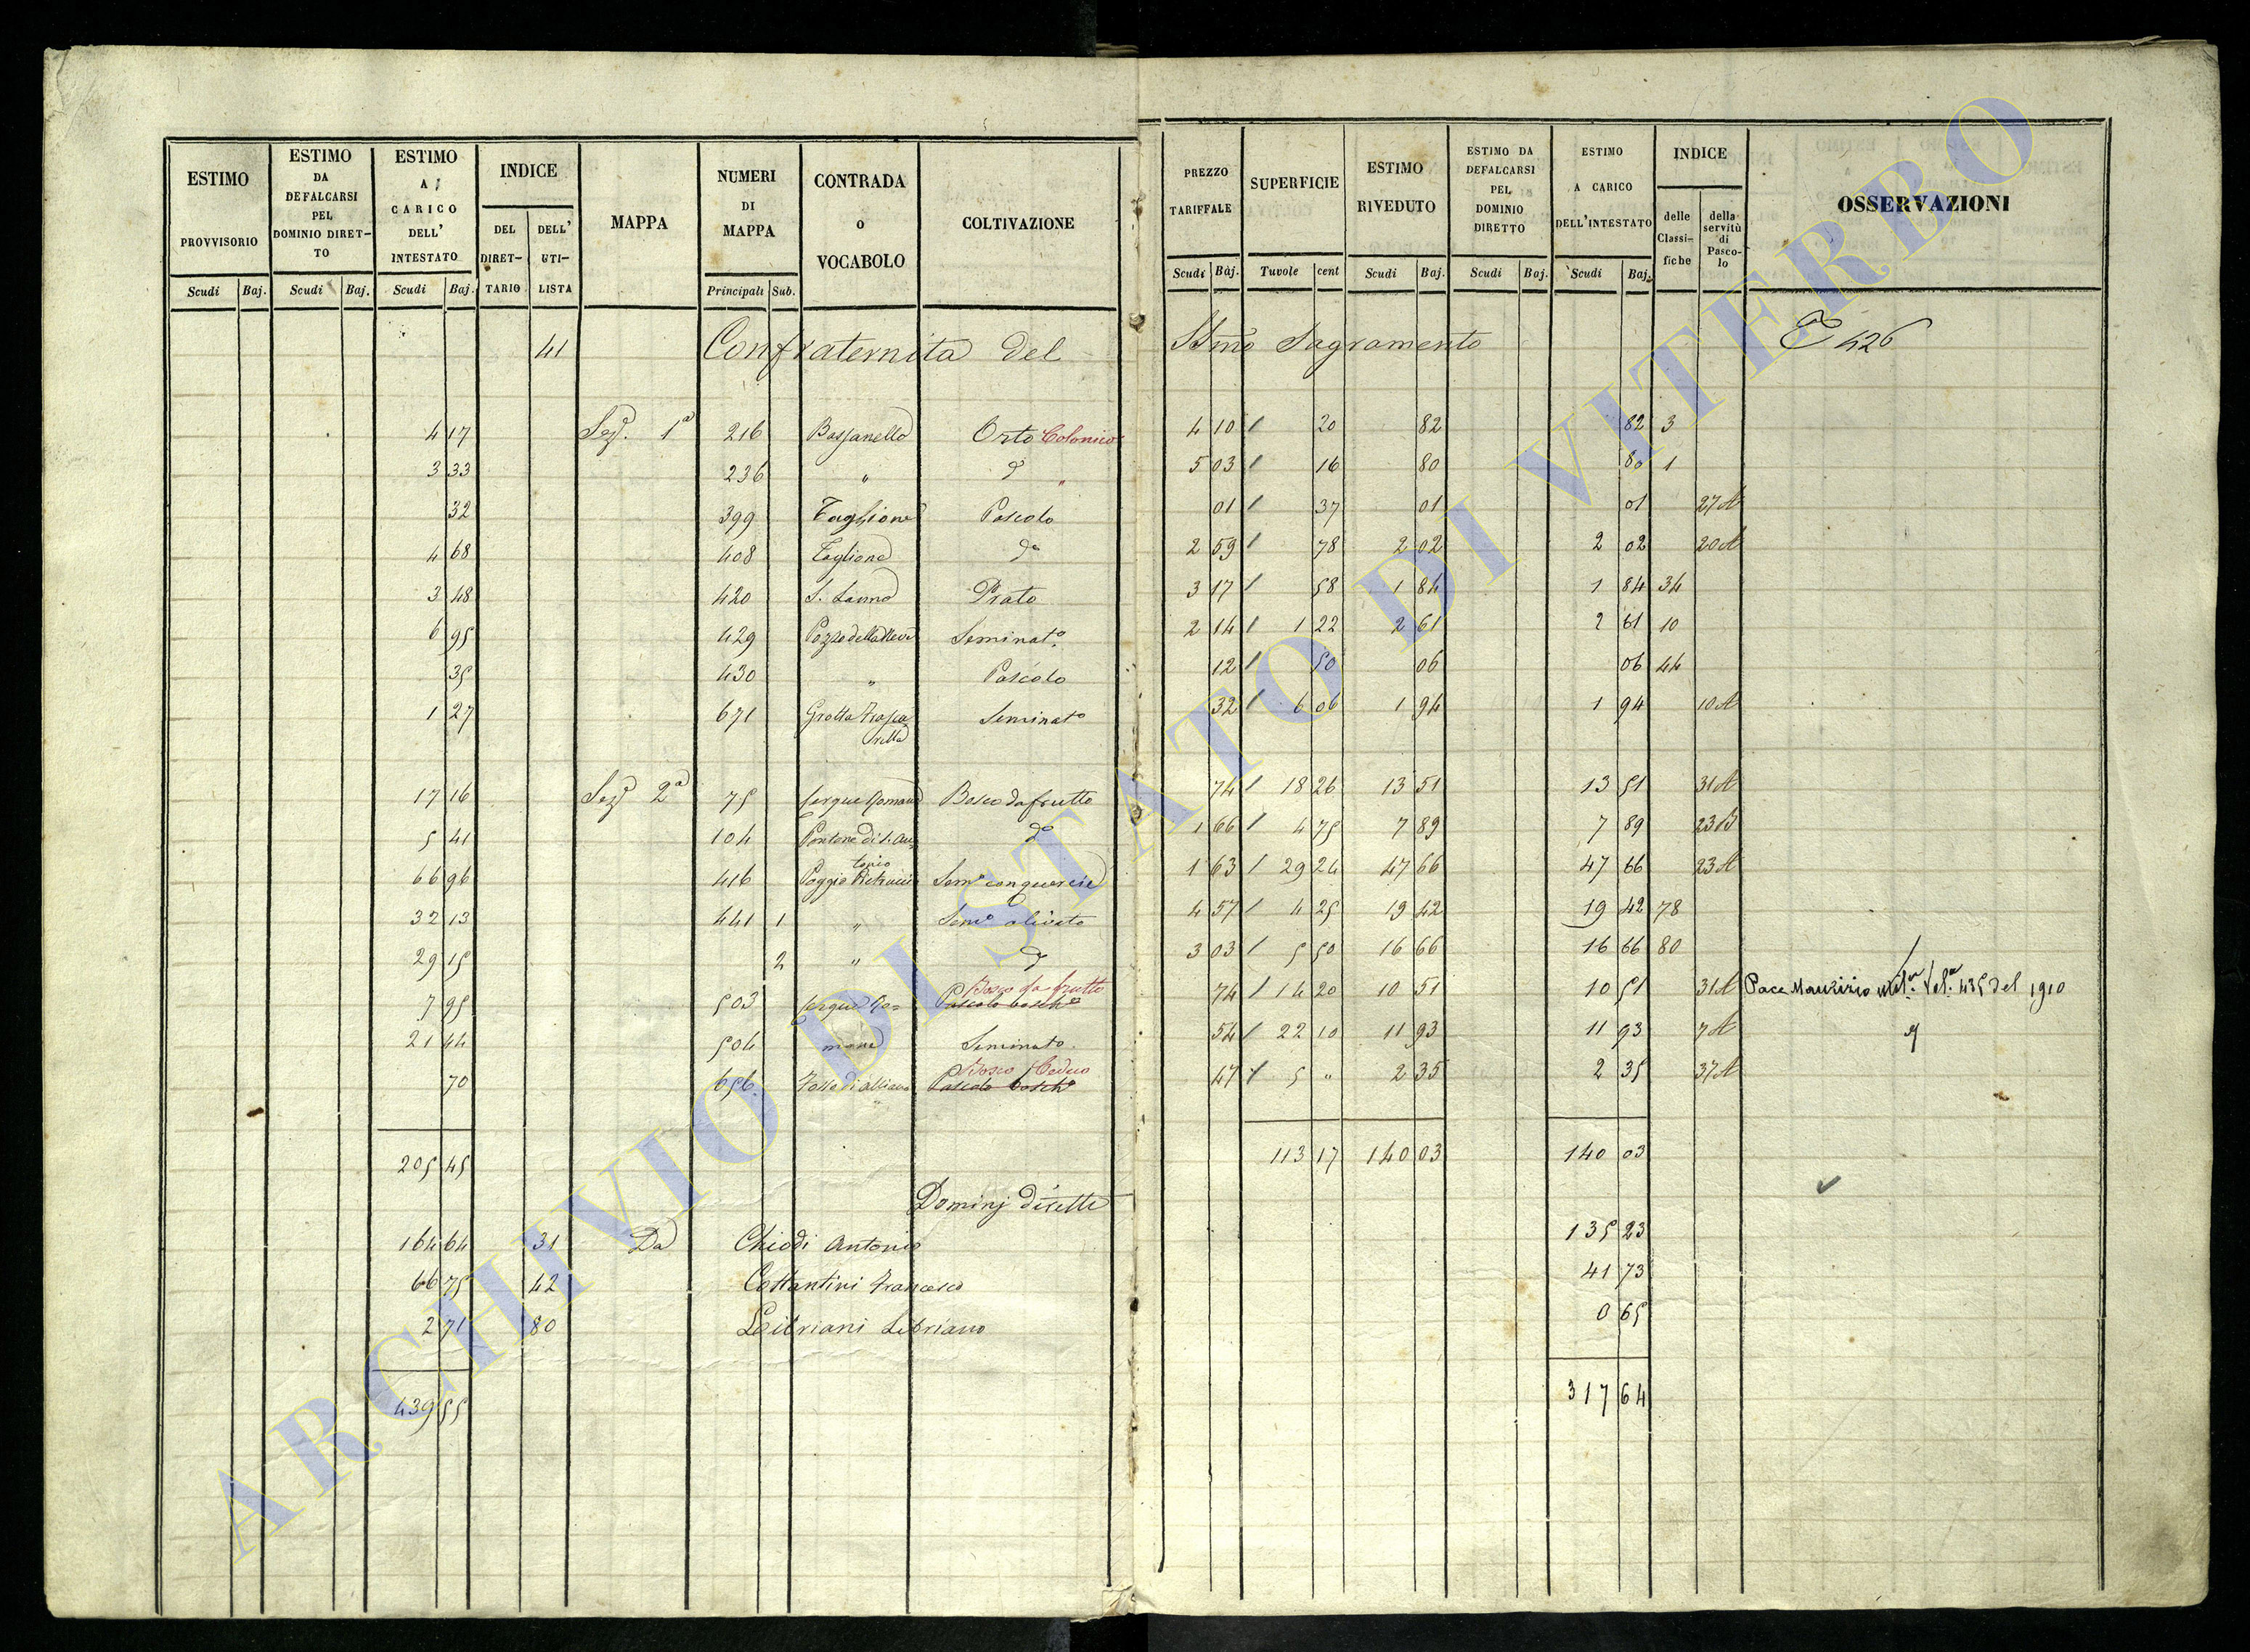 ESTIMO PROVVISORIO Scudi Baj.
ESTIMO DA DEFALCARSI PEL DOMINIO DIRET- TO Scudi Baj.
ESTIMO A CARICO DELL' INTESTATO Scudi Baj.
INDICE DEL DIRET- TARIO DELL' UTI- LISTA
MAPPA
NUMERI DI MAPPA Principali Sub.
CONTRADA o VOCABOLO
COLTIVAZIONE
PREZZO TARIFFALE Scudi Baj.
SUPERFICIE Tavole cent
ESTIMO RIVEDUTO Scudi Baj.
ESTIMO DA DEFALCARSI PEL DOMINIO DIRETTO Scudi Baj.
ESTIMO A CARICO DELL'INTESTATO Scudi Baj.
INDICE delle Classi- fiche della servitù di Pasco- lo
OSSERVAZIONI
41 Confraternita del Ssmo Sagramento 426
4 17 Sezе. 1a 216 Bassanello Orto Colonico 4 10 / 20 82 82 3
3 33 236 " do " 5 03 / 16 80 80 1
32 399 Taglione Pascolo 01 / 37 01 01 27 A
4 68 408 Taglione do 2 59 / 78 2 02 2 02 20 A
3 48 420 Prato 3 17 / 58 1 84 1 84 34
6 95 429 Pozzo della Neve Seminato 2 14 / 1 22 2 61 2 61 10
35 430 " Pascolo 12 / 50 06 06 44
1 27 671 Grotta Seminato 32 / 6 06 1 94 1 94 10 A
17 16 Seze 2a 75 Cerque Romane Bosco da frutto 74 / 18 26 13 51 13 51 31 A
5 41 104 Pontone di S. An- tonio do 1 66 / 4 75 7 89 7 89 23 B
66 96 416 Poggio Semo con quercie 1 63 / 29 24 47 66 47 66 23 A
32 13 441 1 " Semo olivato 4 57 / 4 25 19 42 19 42 78
29 15 2 " do 3 03 / 5 50 16 66 16 66 80
Bosco da frutto
7 95 503 Cerque Ro= Pascolo boscho 74 / 14 20 10 51 10 51 31 A Pace Maurizio del 1910
21 44 504 mane Seminato 54 / 22 10 11 93 11 93 7 A
Bosco Ceduo
70 656 Pascolo boscho 47 / 5 " 2 35 2 35 37 A
205 45 113 17 140 03 140 03
Dominj diretti
164 64 31 Da Chiodi Antonio 135 23
66 75 42 Costantini Francesco 41 73
2 71 80 Leibriani Lebriano 0 65
439 55 317 64
ARCHIVIO DI STATO DI VITERBO